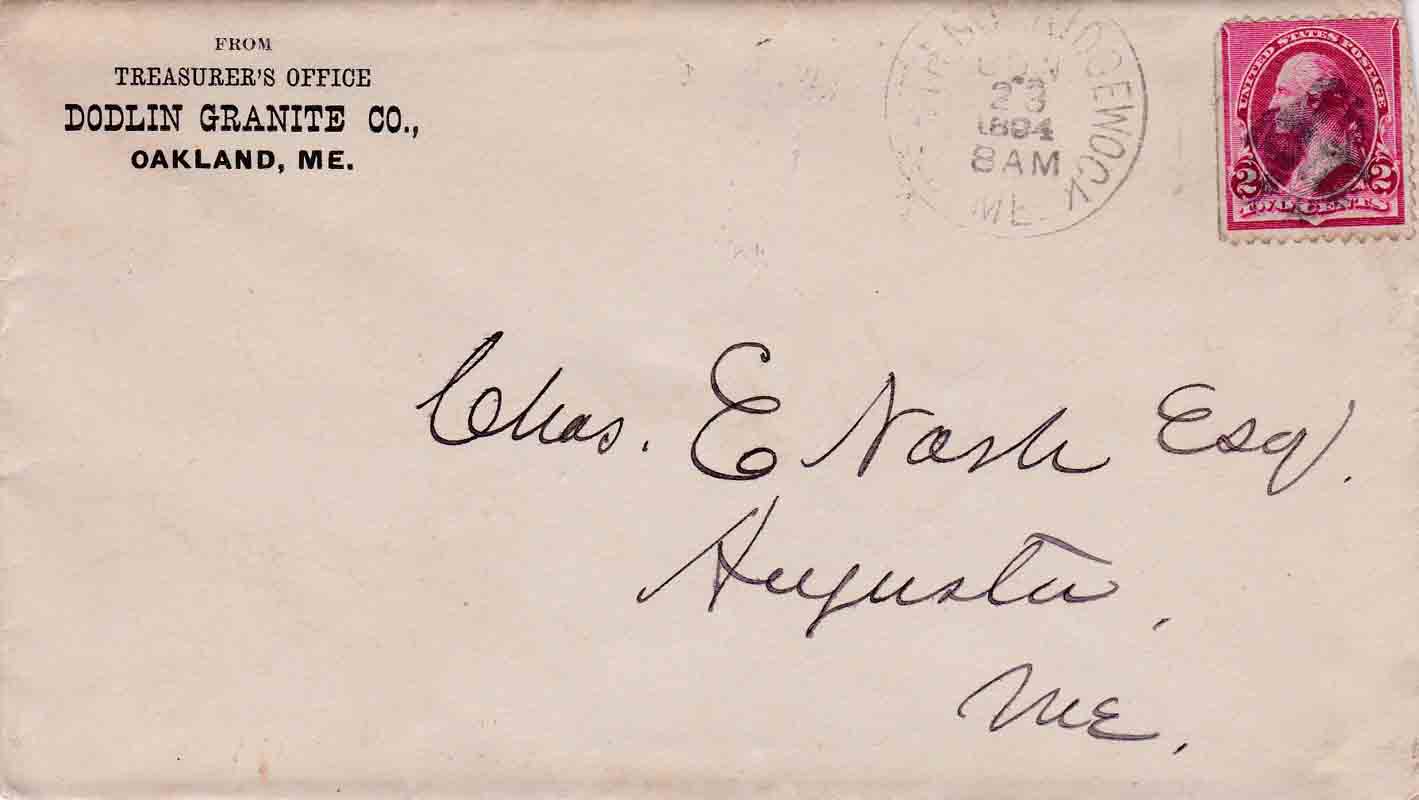 FROM
TREASURER'S OFFICE
DODLIN GRANITE CO.,
OAKLAND, ME.
RIDGEWOCK
23
1894
8 AM
ME.
UNITED STATES POSTAGE
2 2
Chas. E Nash Esq.
Augusta,
ME.